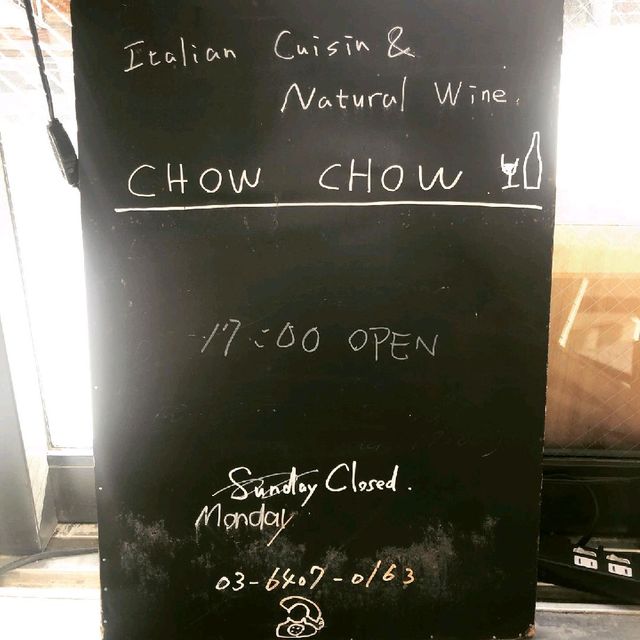 Italian Cuisin &
Natural Wine.
CHOW CHOW
17:00 OPEN
Sunday Closed.
Monday
03-6407-0163